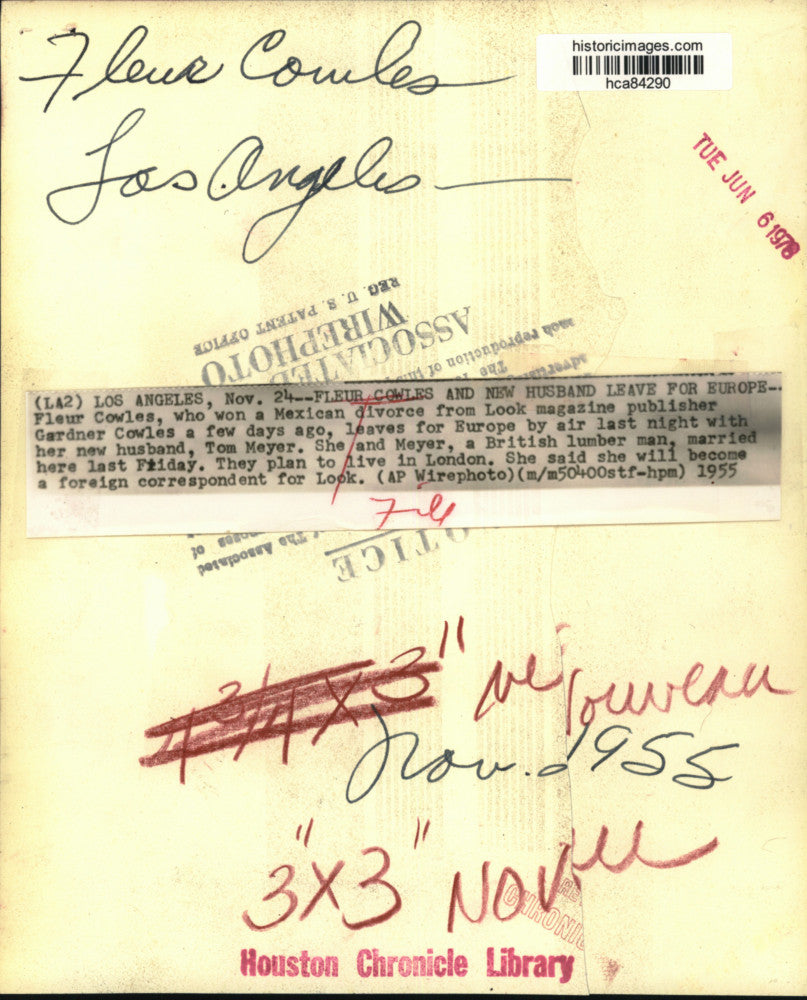 Fleur Cowles
historicimages.com
hca84290
Los Angeles
TUE JUN 6 1978
REG. U. S. PATENT OFFICE
ASSOCIATED
WIREPHOTO
(LA2) LOS ANGELES, Nov. 24--FLEUR COWLES AND NEW HUSBAND LEAVE FOR EUROPE--
Fleur Cowles, who won a Mexican divorce from Look magazine publisher
Gardner Cowles a few days ago, leaves for Europe by air last night with
her new husband, Tom Meyer. She and Meyer, a British lumber man, married
here last Friday. They plan to live in London. She said she will become
a foreign correspondent for Look. (AP Wirephoto)(m/m50400stf-hpm) 1955
The Associated
NOTICE
3"
Nov. 1955
3" X 3"
CHRONI
Houston Chronicle Library